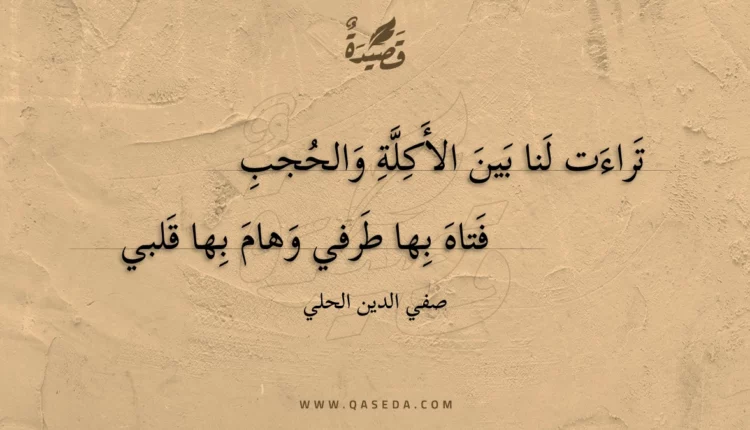 قَصِيْدَةٌ
تَراءَت لَنا بَينَ الأَكِلَّةِ وَالحُجبِ
فَتاهَ بِها طَرَفي وَهامَ بِها قَلبي
صفي الدين الحلي
WWW.QASEDA.COM